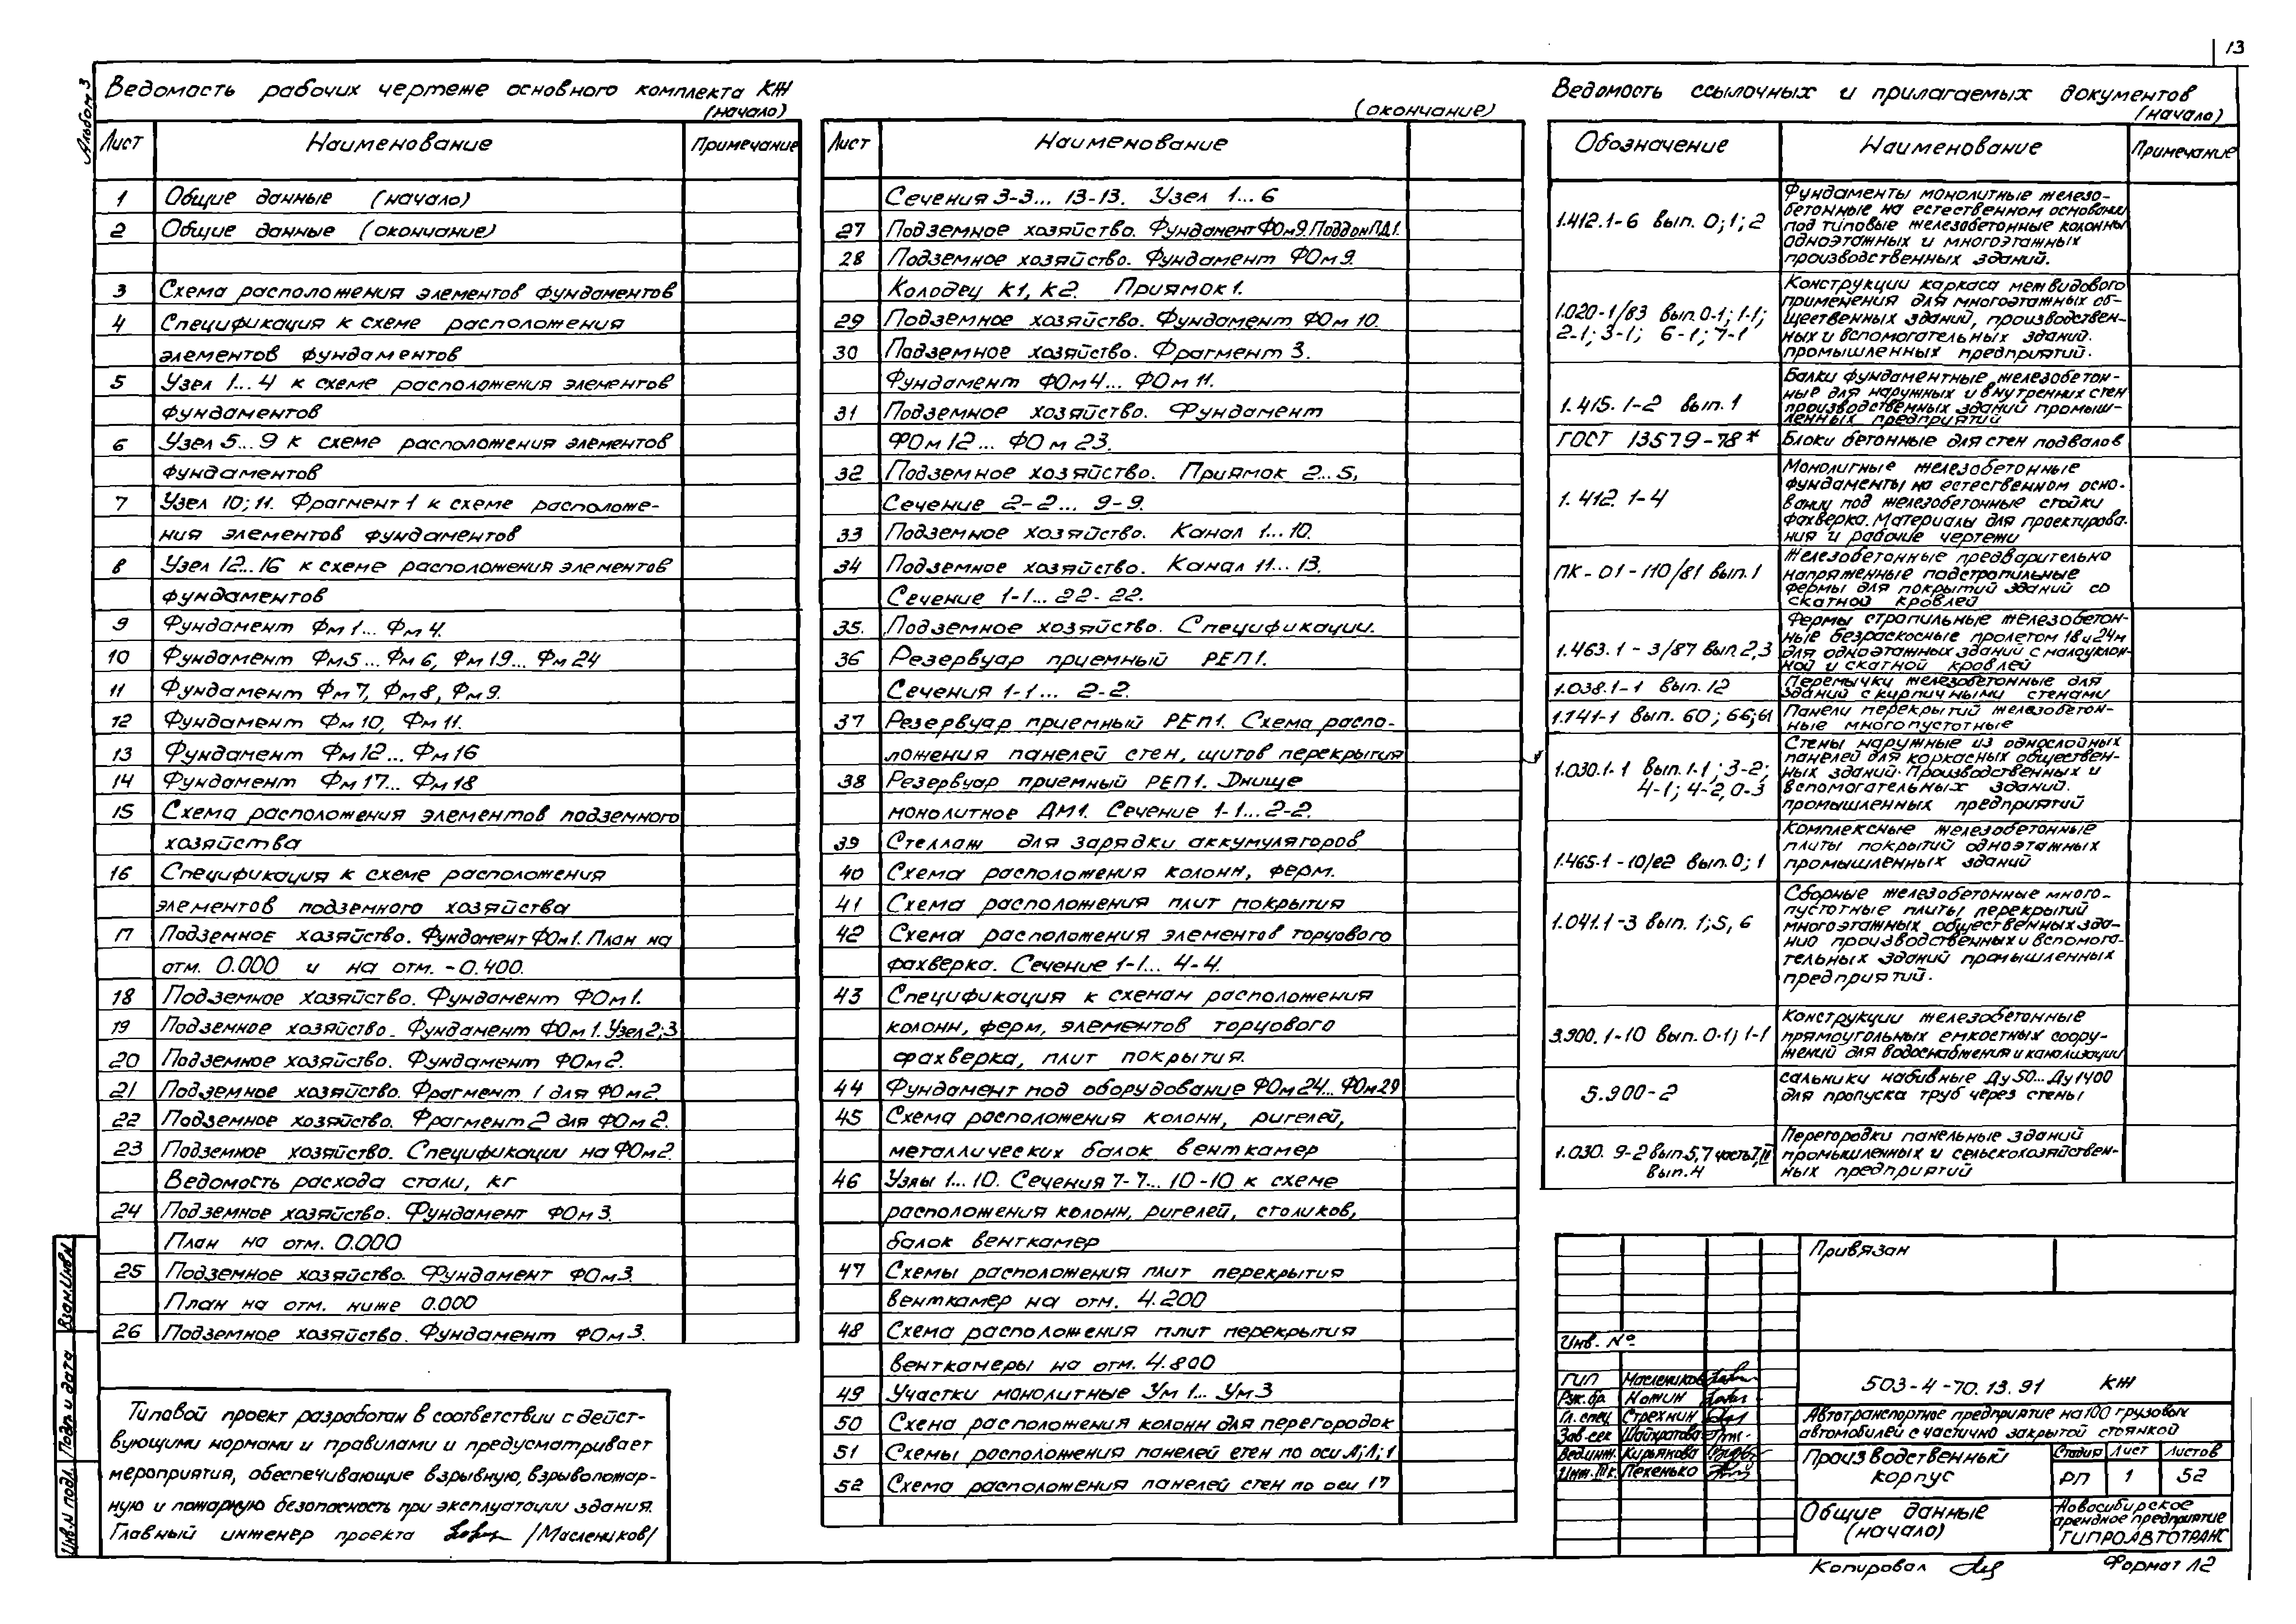 13
Альбом 3
Ведомость рабочих чертеже основного комплекта КЖ
(начало)
Лист Наименование Примечание
1 Общие данные (начало)
2 Общие данные (окончание)
3 Схема расположения элементов фундаментов
4 Спецификация к схеме расположения
элементов фундаментов
5 Узел 1...4 к схеме расположения элементов
фундаментов
6 Узел 5...9 к схеме расположения элементов
фундаментов
7 Узел 10; 11. Фрагмент 1 к схеме расположе-
ния элементов фундаментов
8 Узел 12...16 к схеме расположения элементов
фундаментов
9 Фундамент Фм 1... Фм 4.
10 Фундамент Фм5... Фм 6, Фм 19... Фм 24
11 Фундамент Фм 7, Фм 8, Фм 9.
12 Фундамент Фм 10, Фм 11.
13 Фундамент Фм 12... Фм 16
14 Фундамент Фм 17... Фм 18
15 Схема расположения элементов подземного
хозяйства
16 Спецификация к схеме расположения
элементов подземного хозяйства
17 Подземное хозяйство. Фундамент ФОм1. План на
отм. 0.000 и на отм. -0.400.
18 Подземное хозяйство. Фундамент ФОм 1.
19 Подземное хозяйство. Фундамент ФОм 1. Узел 2;3
20 Подземное хозяйство. Фундамент ФОм 2.
21 Подземное хозяйство. Фрагмент 1 для ФОм2.
22 Подземное хозяйство. Фрагмент 2 для ФОм 2.
23 Подземное хозяйство. Спецификации на ФОм2.
Ведомость расхода стали, кг
24 Подземное хозяйство. Фундамент ФОм 3.
План на отм. 0.000
25 Подземное хозяйство. Фундамент ФОм 3.
План на отм. ниже 0.000
26 Подземное хозяйство. Фундамент ФОм 3.
Типовой проект разработан в соответствии с дейст-
вующими нормами и правилами и предусматривает
мероприятия, обеспечивающие взрывную, взрывопожар-
ную и пожарную безопасность при эксплуатации здания.
Главный инженер проекта /Маслеников/
Взам.Инв.N
Подп. и дата
Инв.N подл.
(окончание)
Лист Наименование
Сечения 3-3... 13-13. Узел 1...6
27 Подземное хозяйство. Фундамент ФОм9. Поддон ПД1.
28 Подземное хозяйство. Фундамент ФОм 9.
Колодец К1, К2. Приямок 1.
29 Подземное хозяйство. Фундамент ФОм 10.
30 Подземное хозяйство. Фрагмент 3.
Фундамент ФОм 4... ФОм 11.
31 Подземное хозяйство. Фундамент
ФОм 12... ФОм 23.
32 Подземное хозяйство. Приямок 2...5,
Сечение 2-2... 9-9.
33 Подземное хозяйство. Канал 1...10.
34 Подземное хозяйство. Канал 11...13.
Сечение 1-1... 22-22.
35. Подземное хозяйство. Спецификации.
36 Резервуар приемный РЕП1.
Сечения 1-1... 2-2.
37 Резервуар приемный РЕП1. Схема распо-
ложения панелей стен, щитов перекрытия
38 Резервуар приемный РЕП1. Днище
монолитное ДМ1. Сечение 1-1...2-2.
39 Стеллаж для зарядки аккумуляторов
40 Схема расположения колонн, ферм.
41 Схема расположения плит покрытия
42 Схема расположения элементов торцового
фахверка. Сечение 1-1... 4-4.
43 Спецификация к схемам расположения
колонн, ферм, элементов торцового
фахверка, плит покрытия.
44 Фундамент под оборудование ФОм 24... ФОм29
45 Схема расположения колонн, ригелей,
металлических балок венткамер
46 Узлы 1...10. Сечения 7-7... 10-10 к схеме
расположения колонн, ригелей, столиков,
балок венткамер
47 Схемы расположения плит перекрытия
венткамер на отм. 4.200
48 Схема расположения плит перекрытия
венткамеры на отм. 4.800
49 Участки монолитные Ум 1... Ум 3
50 Схема расположения колонн для перегородок
51 Схемы расположения панелей стен по оси А; Л; 1
52 Схема расположения панелей стен по оси 17
Ведомость ссылочных и прилагаемых документов
(начало)
Обозначение Наименование Примечание
1.412.1-6 вып. 0; 1; 2
Фундаменты монолитные железо-
бетонные на естественном основании
под типовые железобетонные колонны
одноэтажных и многоэтажных
производственных зданий.
1.020-1/83 вып. 0-1; 1-1;
2-1; 3-1; 6-1; 7-1
Конструкции каркаса межвидового
применения для многоэтажных об-
щественных зданий, производствен-
ных и вспомогательных зданий.
промышленных предприятий.
1.415.1-2 вып. 1
Балки фундаментные железобетон-
ные для наружных и внутренних стен
производственных зданий промыш-
ленных предприятий
ГОСТ 13579-78* Блоки бетонные для стен подвалов
1.412.1-4
Монолитные железобетонные
фундаменты на естественном осно-
вании под железобетонные стойки
фахверка. Материалы для проектирова-
ния и рабочие чертежи
ПК-01-110/81 вып. 1
Железобетонные предварительно
напряженные подстропильные
фермы для покрытий зданий со
скатной кровлей
1.463.1-3/87 вып. 2,3
Фермы стропильные железобетон-
ные безраскосные пролетом 18 и 24м
для одноэтажных зданий с малоуклон-
ной и скатной кровлей
1.038.1-1 вып. 12
Перемычки железобетонные для
зданий с кирпичными стенами
1.141-1 вып. 60; 66; 61
Панели перекрытий железобетон-
ные многопустотные
1.030.1-1 вып. 1-1; 3-2;
4-1; 4-2, 0-3
Стены наружные из однослойных
панелей для каркасных обществен-
ных зданий. Производственных и
вспомогательных зданий.
промышленных предприятий
1.465.1-10/82 вып. 0; 1
Комплексные железобетонные
плиты покрытий одноэтажных
промышленных зданий
1.041.1-3 вып. 1; 5, 6
Сборные железобетонные много-
пустотные плиты перекрытий
многоэтажных общественных зда-
ний производственных и вспомога-
тельных зданий промышленных
предприятий.
3.900.1-10 вып. 0-1; 1-1
Конструкции железобетонные
прямоугольных емкостных соору-
жений для водоснабжения и канализации
5.900-2
сальники набивные Ду 50... Ду 1400
для пропуска труб через стены
1.030.9-2 вып.5,7 часть I, II
вып.4
Перегородки панельные зданий
промышленных и сельскохозяйствен-
ных предприятий
Привязан
Инв. №
ГИП Маслеников
Рук. бр. Нотин
Гл. спец Стрехнин
Зав. сек Шайхратова
Вед.инж. Кирьянова
Инж. IIк. Пехенько
503-4-70.13.91 КЖ
Автотранспортное предприятие на 100 грузовых
автомобилей с частично закрытой стоянкой
Производственный
корпус
Стадия Лист Листов
РП 1 52
Общие данные
(начало)
Новосибирское
арендное предприятие
ГИПРОАВТОТРАНС
Копировал
Формат А2